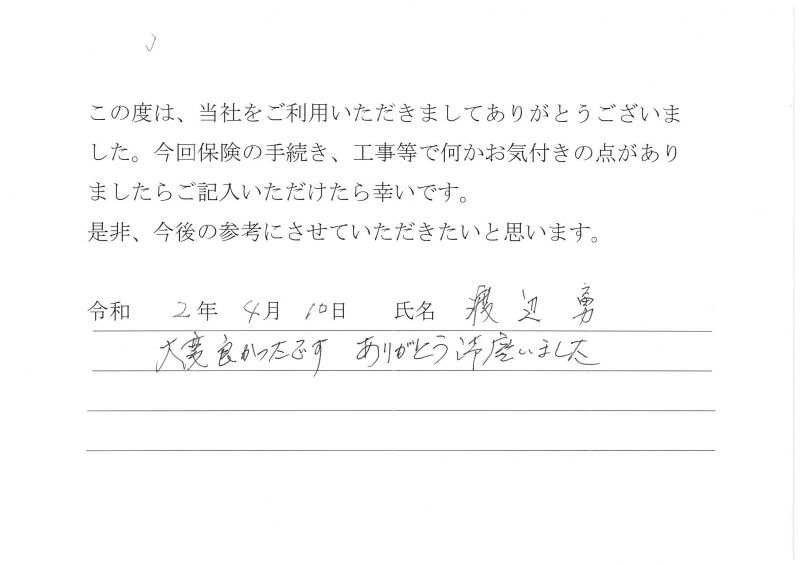 この度は、当社をご利用いただきましてありがとうございま
した。今回保険の手続き、工事等で何かお気付きの点があり
ましたらご記入いただけたら幸いです。
是非、今後の参考にさせていただきたいと思います。
令和 2年 4月 10日 氏名 渡辺 勇
大変良かったです ありがとう御座いました